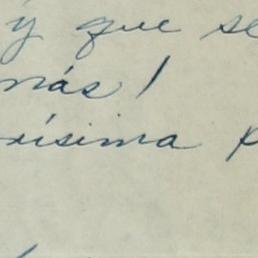 y que se
más!
ísima p